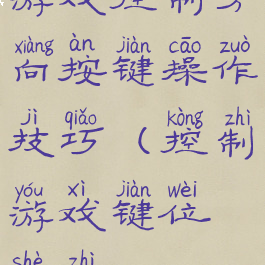 游戏控制方
xiàng àn jiàn cāo zuò
向按键操作
jì qiǎo kòng zhì
技巧（控制
yóu xì jiàn wèi
游戏键位
shè zhì